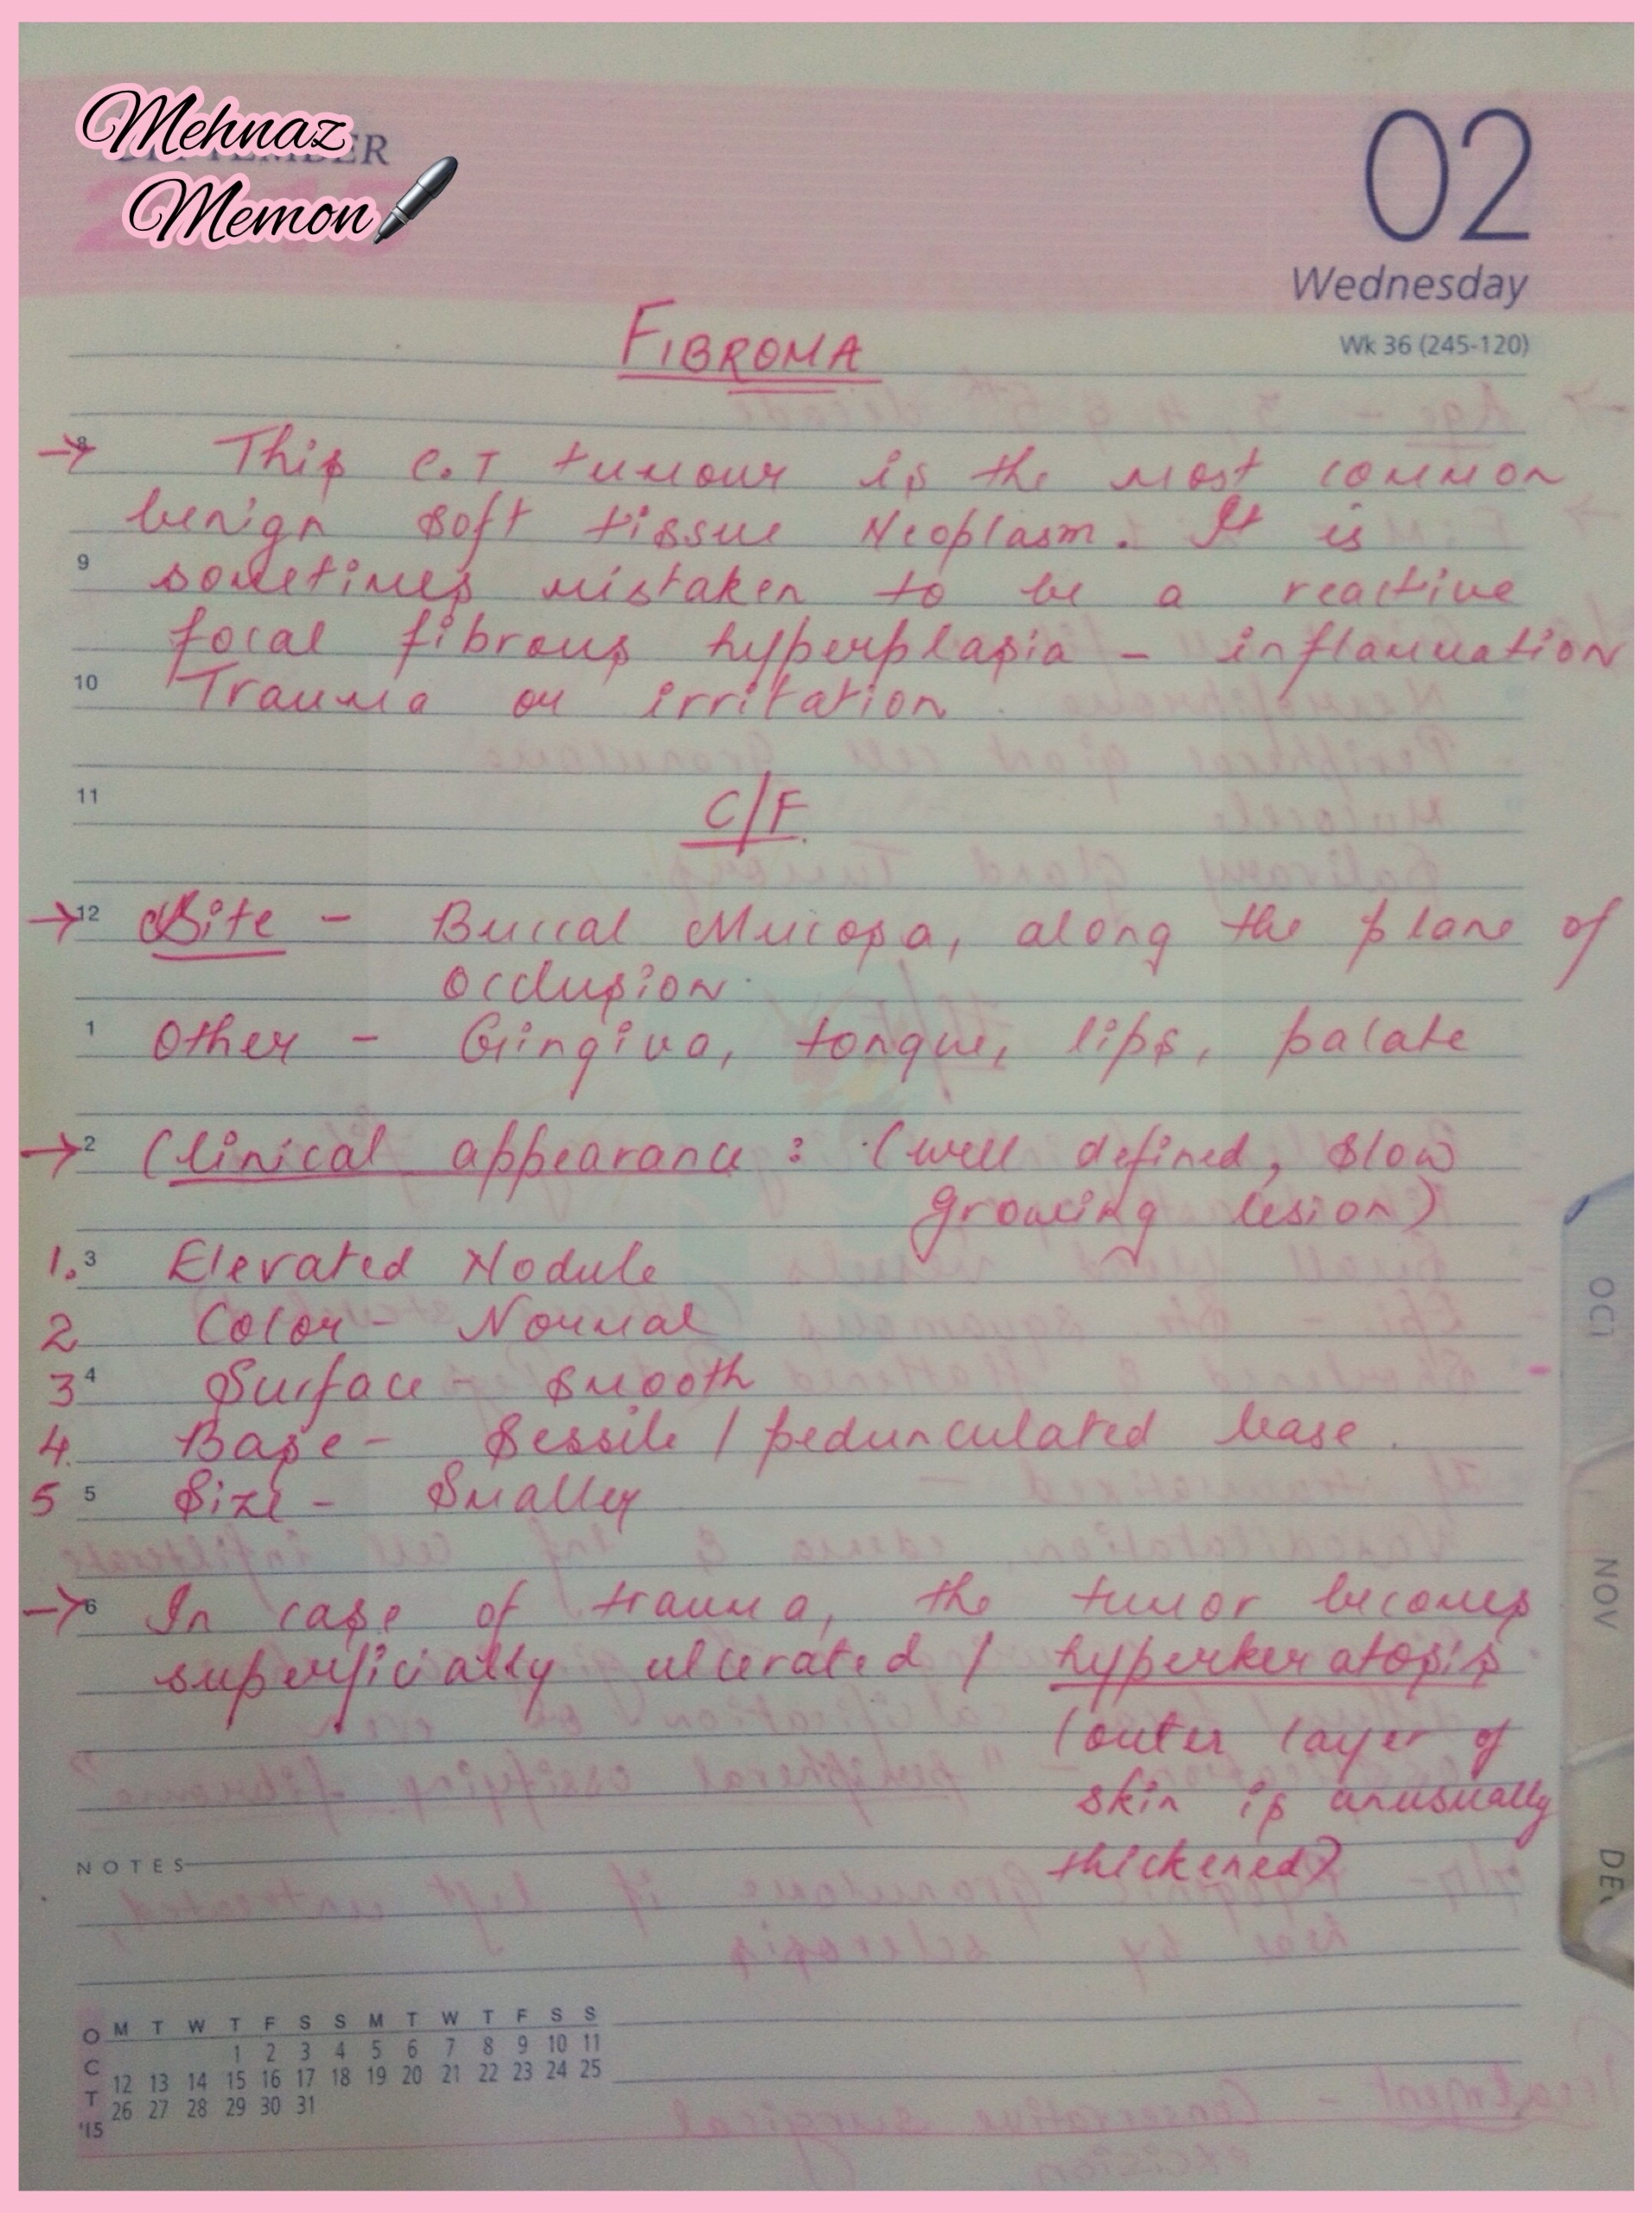 Mehnaz
Memon
SEPTEMBER
02
Wednesday
Wk 36 (245-120)
FIBROMA
8 → This C.T tumour is the most common
benign soft tissue Neoplasm. It is
9 sometimes mistaken to be a reactive
focal fibrous hyperplasia - inflammation
10 Trauma or irritation.
11 C/F
→ 12 Site - Buccal Mucosa, along the plane of
occlusion.
1 Other - Gingiva, tongue, lips, palate
→ 2 Clinical appearance : (well defined, slow
growing lesion)
1. 3 Elevated Nodule
2 Color - Normal
3 4 Surface - smooth
4. Base - Sessile / pedunculated base.
5 5 Size - Smaller
→ 6 In case of trauma, the tumor becomes
superficially ulcerated / hyperkeratosis
(outer layer of
skin is unusually
thickened)
NOTES
OCT
NOV
OCT '15
M T W T F S S M T W T F S S
1 2 3 4 5 6 7 8 9 10 11
12 13 14 15 16 17 18 19 20 21 22 23 24 25
26 27 28 29 30 31